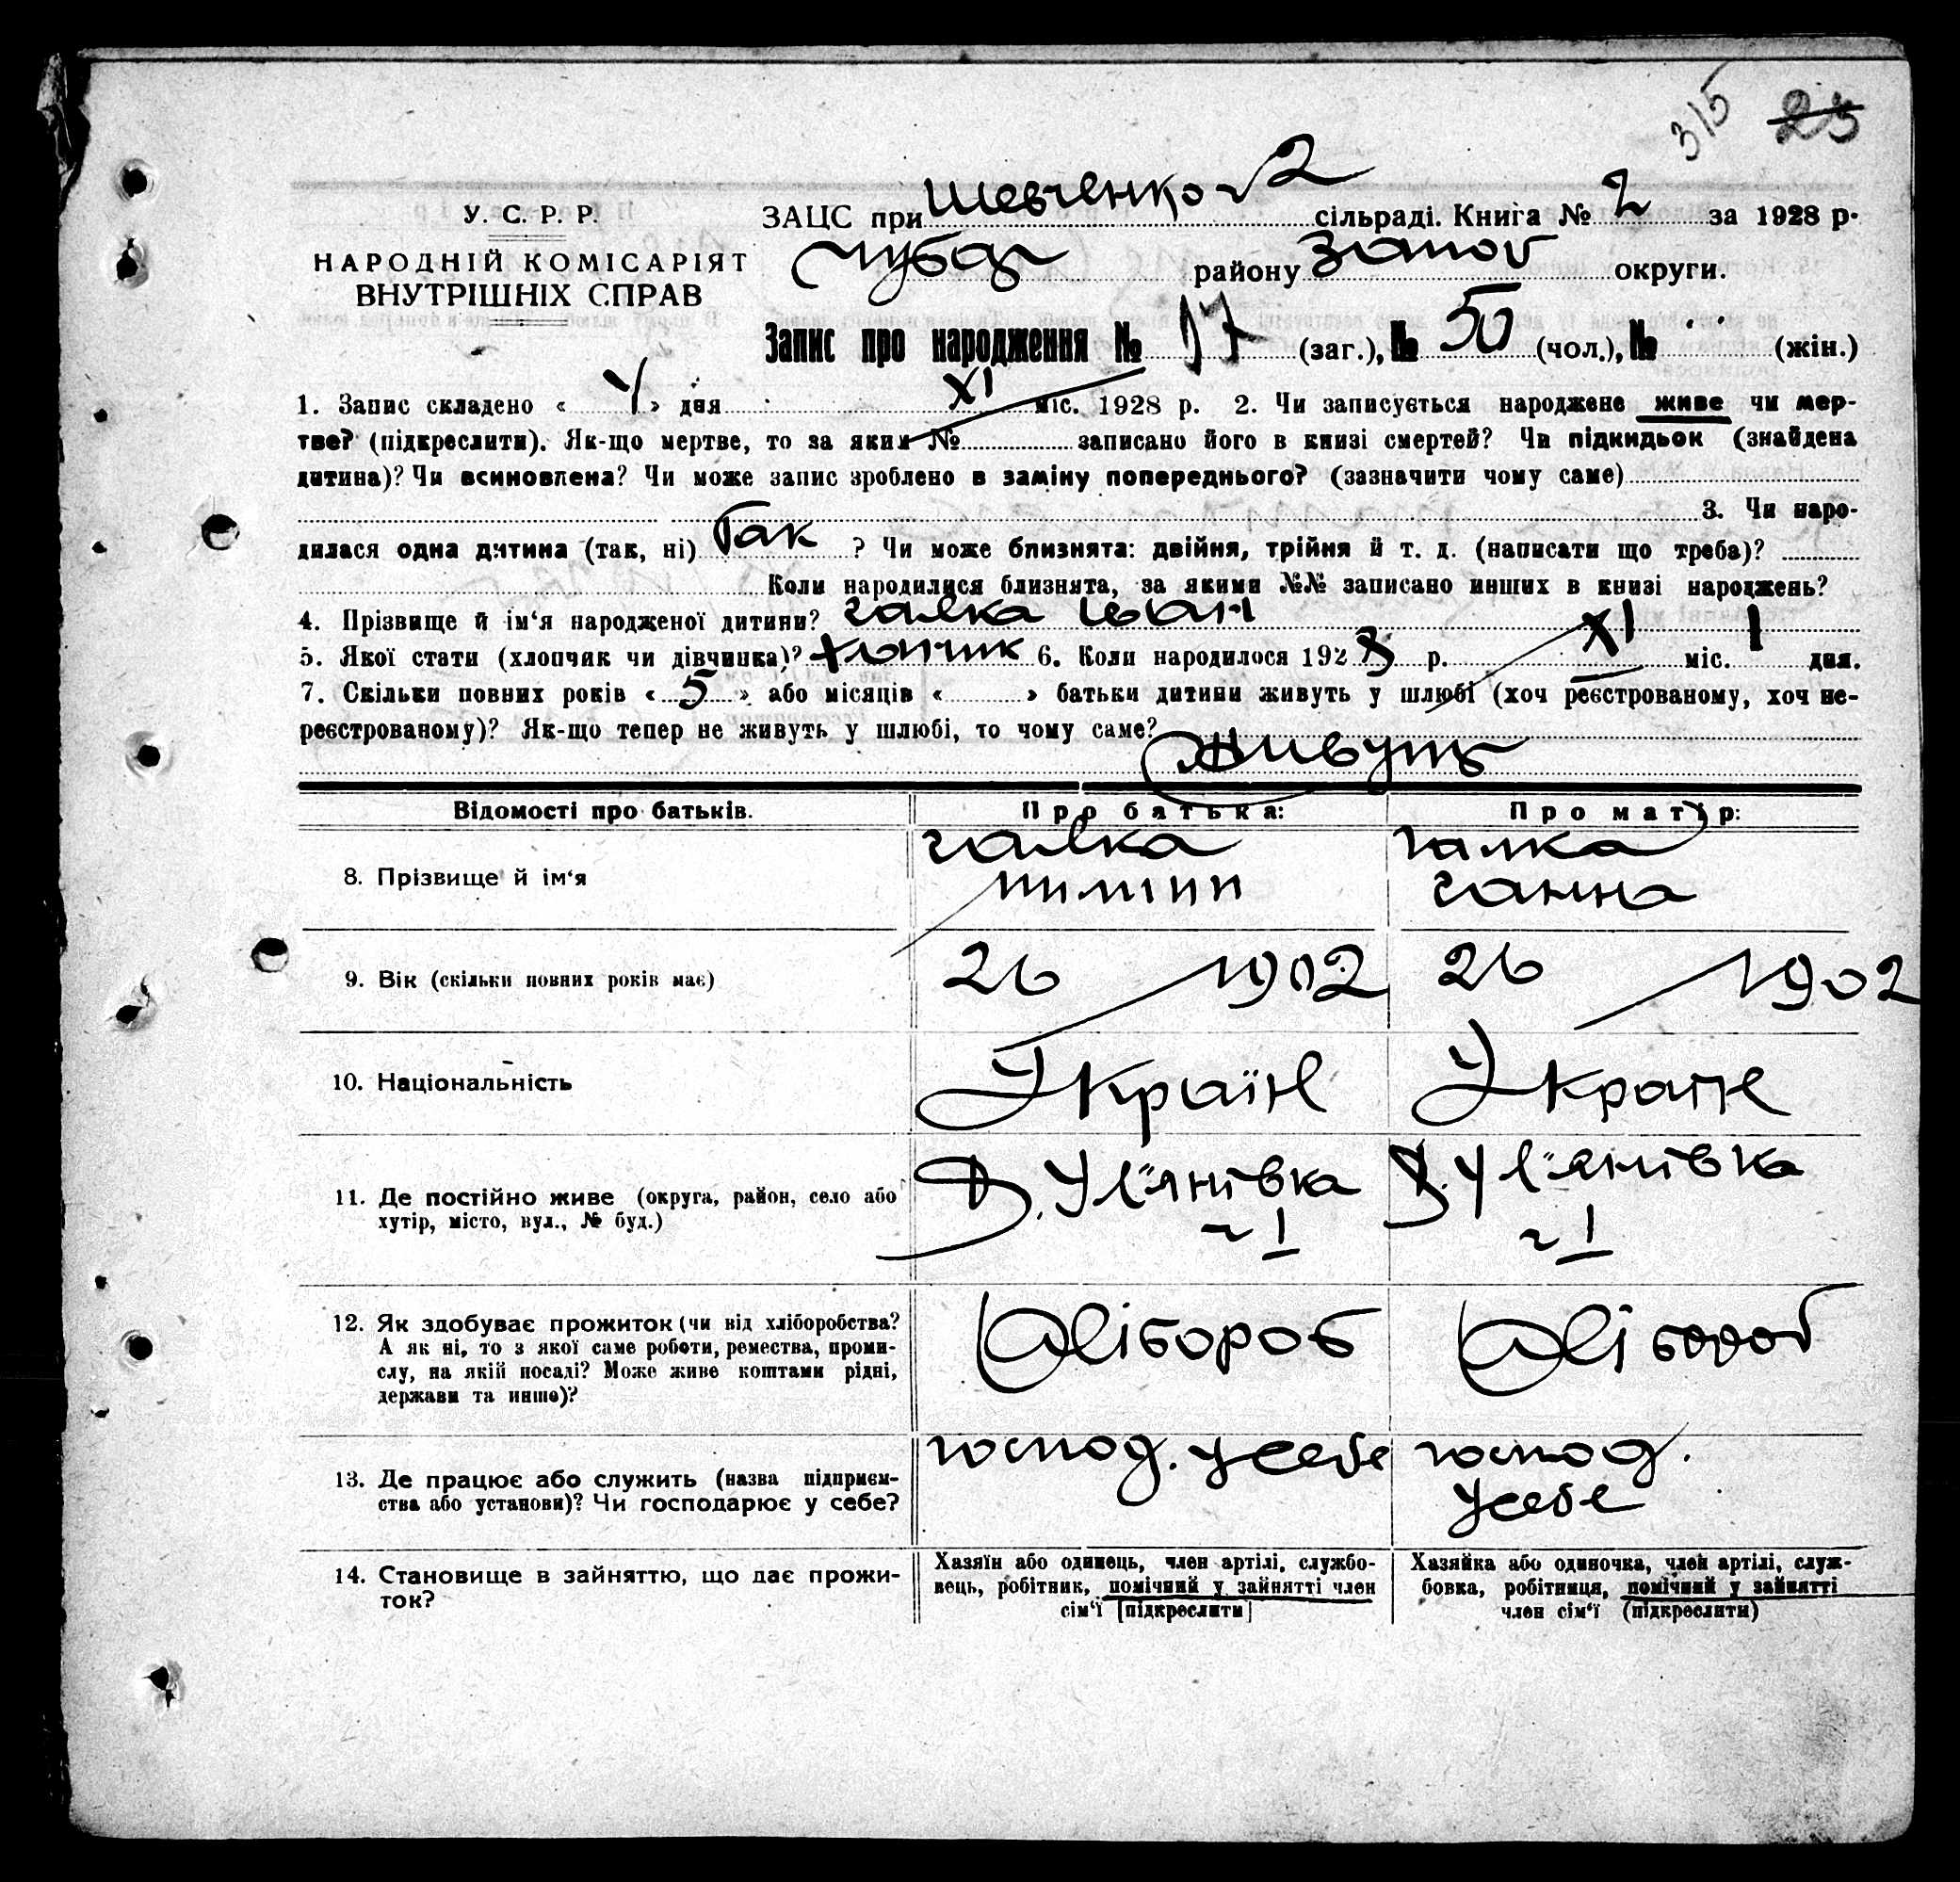 315 25
У. С. Р. Р.
НАРОДНІЙ КОМІСАРІЯТ
ВНУТРІШНІХ СПРАВ
ЗАЦС при Шевченко 2 сільраді. Книга № 2 за 1928 р.
Чубар району Запов округи.
Запис про народження № 97 (заг.), № 50 (чол.), № (жін.)
1. Запис складено « » дня XI міс. 1928 р. 2. Чи записується народжене живе чи мер-
тве? (підкреслити). Як-що мертве, то за яким № записано його в книзі смертей? Чи підкидьок (знайдена
дитина)? Чи всиновлена? Чи може запис зроблено в заміну попереднього? (зазначити чому саме)
3. Чи наро-
дилася одна дитина (так, ні) Так ? Чи може близнята: двійня, трійня й т. д. (написати що треба)?
Коли народилися близнята, за якими №№ записано инших в книзі народжень?
4. Прізвище й ім‘я народженої дитини? Галка Іван
5. Якої стати (хлопчик чи дівчинка)? Хлопчик 6. Коли народилося 1928 р. XI міс. 1 дня.
7. Скільки повних років « 5 » або місяців « » батьки дитини живуть у шлюбі (хоч реєстрованому, хоч не-
реєстрованому)? Як-що тепер не живуть у шлюбі, то чому саме?
Живуть
Відомості про батьків. Про батька: Про матір:
8. Прізвище й ім‘я Галка Пилип Галка Ганна
9. Вік (скільки повних років має) 26 1902 26 1902
10. Національність Україн Україн
11. Де постійно живе (округа, район, село або Д. Ул'янівка Д. Ул'янівка
хутір, місто, вул., № буд.) 1 1
12. Як здобуває прожиток (чи від хліборобства? Хлібороб Хлібороб
А як ні, то з якої саме роботи, ремества, проми-
слу, на якій посаді? Може живе коштами рідні,
держави та инше)?
13. Де працює або служить (назва підприєм- господ. усебе господ.
ства або установи)? Чи господарює у себе? усебе
14. Становище в зайняттю, що дає прожи-
ток?
Хазяїн або одинець, член артілі, службо-
вець, робітник, помічний у зайнятті член
сім‘ї [підкреслити]
Хазяйка або одиночка, член артілі, служ-
бовка, робітниця, помічний у зайнятті
член сім‘ї (підкреслити)